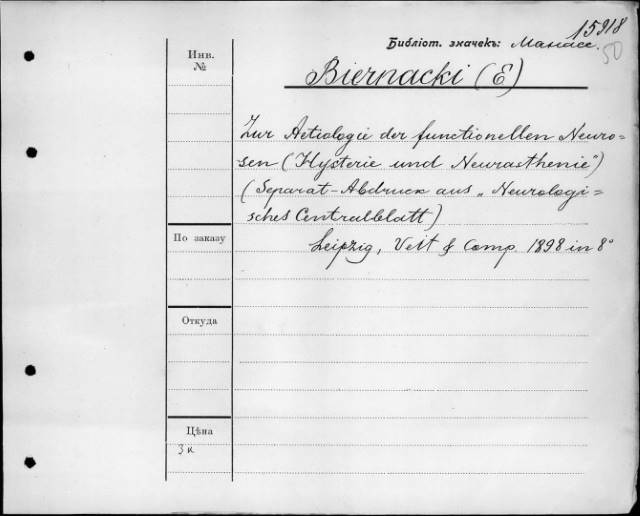 15918
50
Библіот. значекъ: Манасс.
Инв.
№
Biernacki (E)
Zur Aetiologie der functionellen Neuro=
sen (Hysterie und Neurasthenie")
(Separat-Abdruck aus „Neurologi=
sches Centralblatt)
По заказу
Leipzig, Veit & Comp. 1898 in 8°
Откуда
Цѣна
3 к